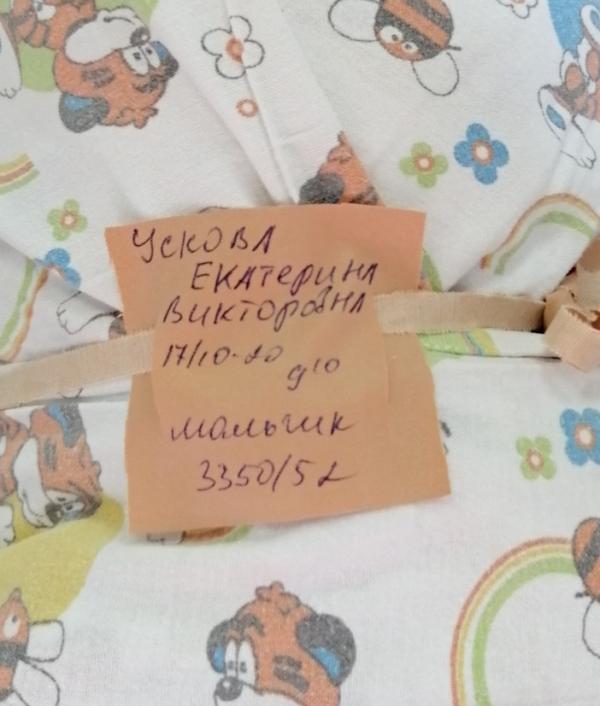 УСКОВА
ЕКАТЕРИНА
ВИКТОРОВНА
17/10-20 9¹⁰
мальчик
3350/52